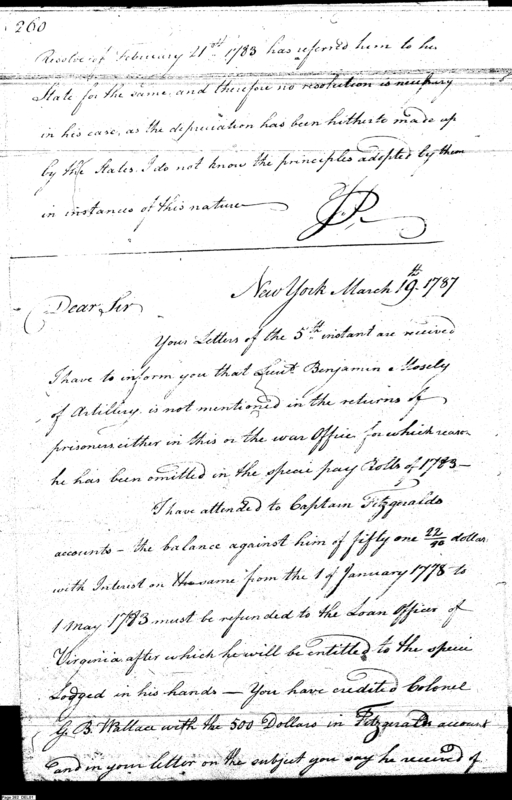 260
Resolve of February 21st 1783 has referred him to his
State for the same, and therefore no resolution is necessary
in his case, as the depreciation has been hitherto made up
by the States. I do not know the principles adopted by them
in instances of this nature
JP
New York March 19th. 1787
Dear Sir
Your Letters of the 5th instant are received
I have to inform you that Lieut. Benjamin Mosely
of Artillery, is not mentioned in the returns of
prisoners either in this or the war Office for which reason
he has been omitted in the specie pay Rolls of 1783—
I have attended to Captain Fitzgeralds
accounts – the balance against him of fifty one 22/90 dollars
with Interest on the same from the 1 of January 1778 to
1 May 1783 must be refunded to the Loan Officer of
Virginia after which he will be entitled to the specie
Lodged in his hands – You have credited Colonel
G. B. Wallace with the 500 Dollars in Fitzgeralds account
and in your letter on the subject you say he received of